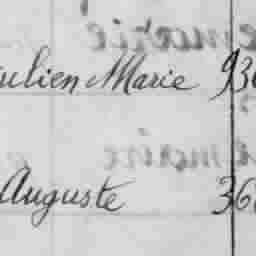 ulien Marie 93
Auguste 36